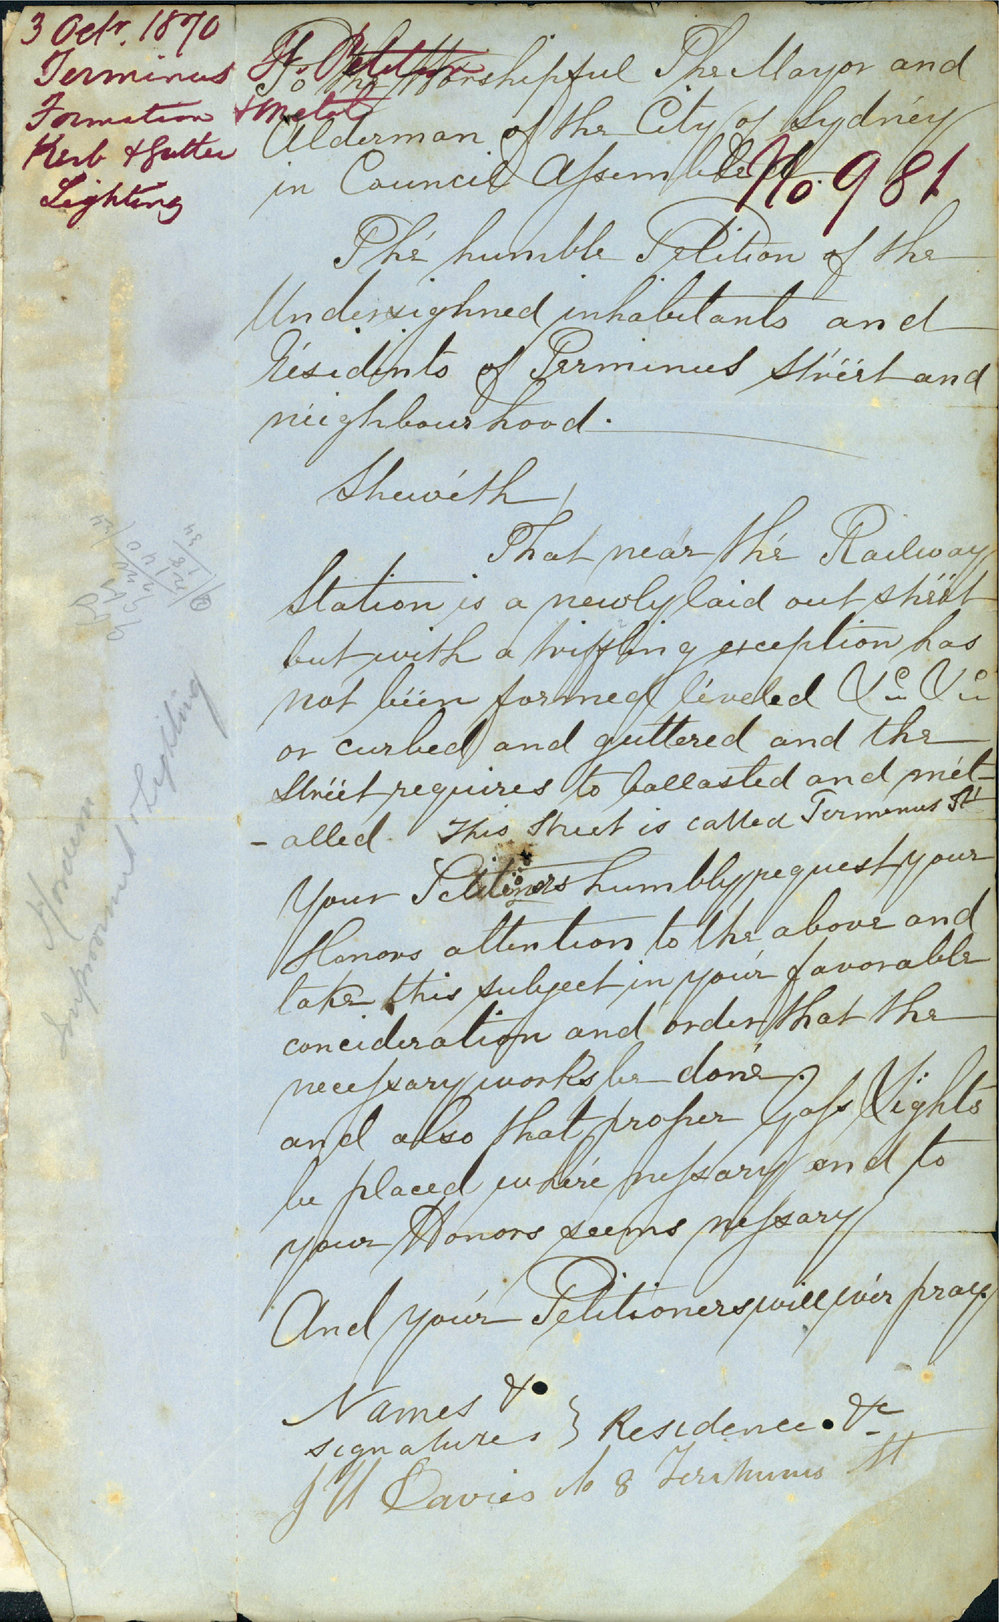 3 Octr. 1870
Terminus St. Petition
Formation & Metal
Kerb & Gutter
Lighting
No. 981
To The Worshipful The Mayor and
Alderman of the City of Sydney
in Council Assembled
The humble Petition of the
Undersighned inhabitants and
Residents of Terminus Street and
neighbourhood.
Sheweth
That near the Railway
Station is a newly laid out street
but with a triffling exception has
not been formed leveled &c &c
or curbed and guttered and the
street requires to ballasted and met-
-alled. This Street is called Terminus St
Your Petitioners humbly request your
Honors attention to the above and
take this subject in your favorable
concideration and order that the
necessary works be done.
and also that proper Gass Lights
be placed where nessary and to
your Honors seems nessary
And your Petitioners will ever pray
Names &
signatures } Residence. &c
J H Davies No 8 Terminus St
Improvement & Lighting